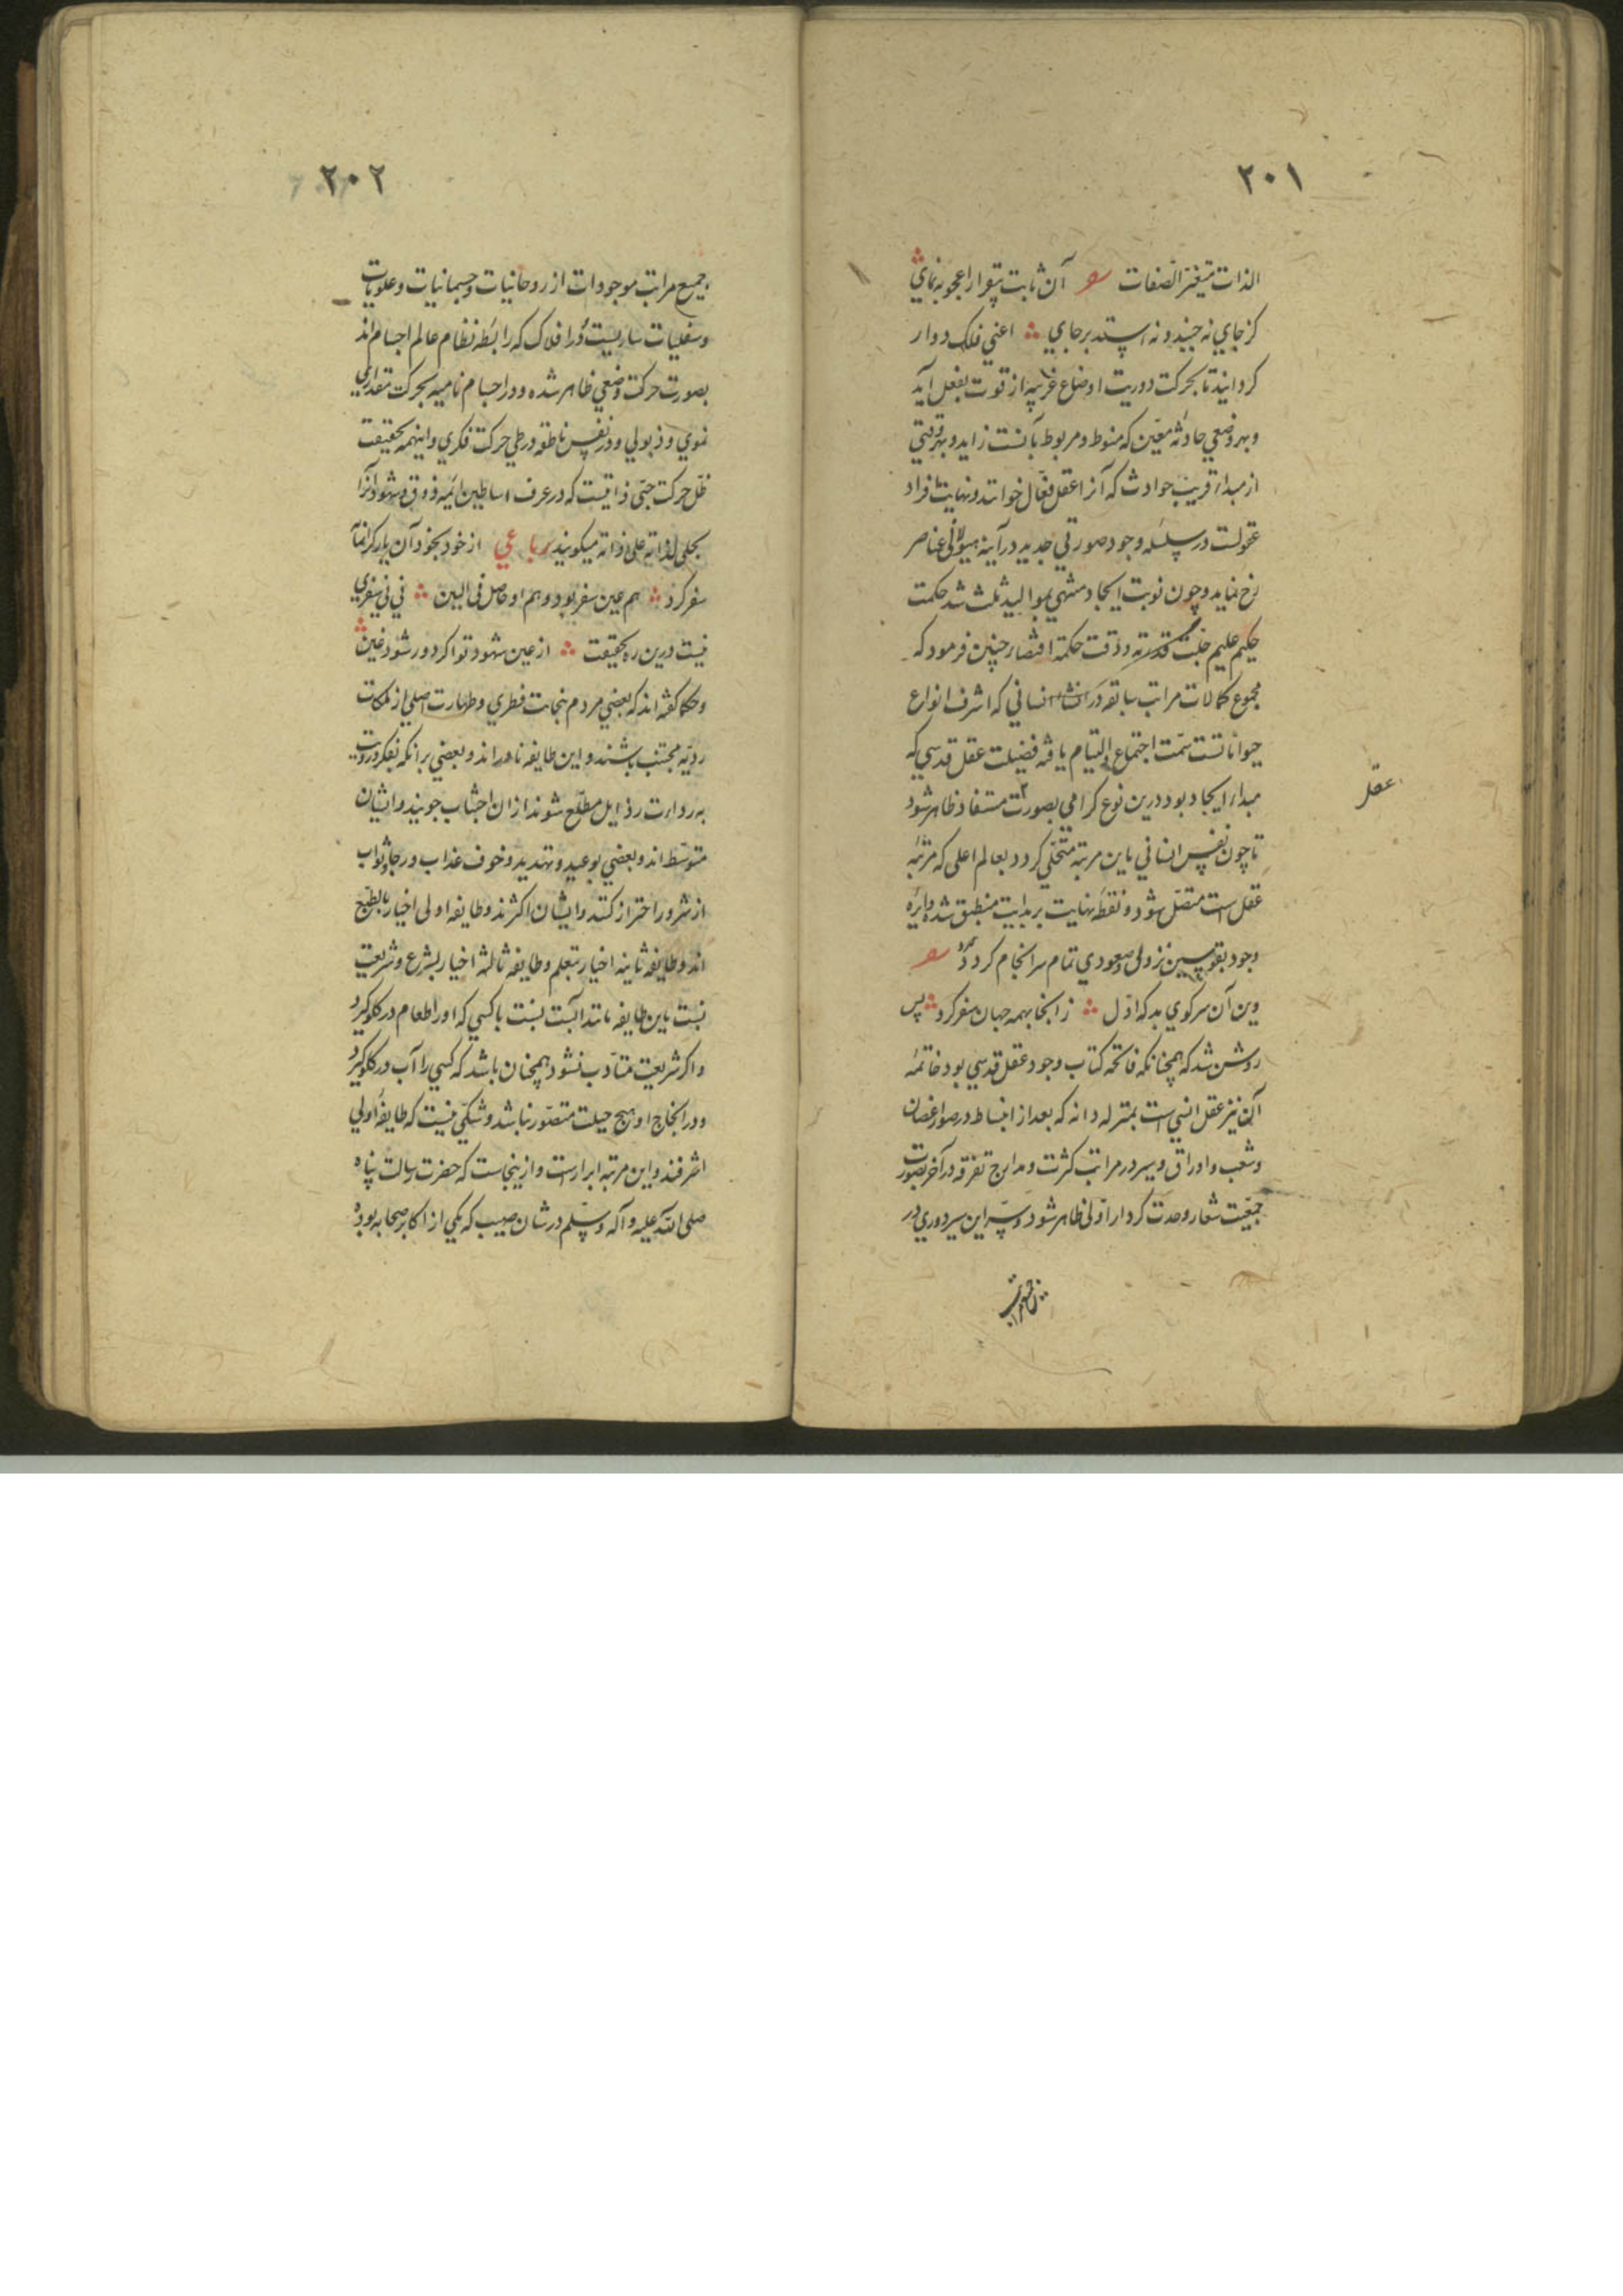 ٢٠١
الذات متغیر الصفات آن ثابت بیقرار اعجوبه نمای
کز جای نه جنبد و نه استد بر جای اعنی فلک دوار
کردانید تا بحرکت دوریت اوضاع غریبه از قوت بفعل آید
و بهر وضعی حادثه معین که منوط و مربوط بآنست زاید و بهر وقتی
از مبداء قریب حوادث که آنرا عقل فعال خوانند و نهایت افراد
عقولست در سلسله وجود صورتی جدید در آینه هیولانی عناصر
رخ نماید و چون نوبت ایجاد منتهی بموالید ثلث شد حکمت
حکیم علیم جلت قدرته و دقت حکمته اقتضاء چنین فرمود که
مجموع کمالات مراتب سابقه در انشاء انسانی که اشرف انواع
حیواناتست سمت اجتماع و التیام یافته فضیلت عقل قدسی که
مبداء ایجاد بود درین نوع کرامی بصورت مستفاد ظاهر شود
عقل
تا چون نفس انسانی باین مرتبه متحلی کردد بعالم اعلی که مرتبه
عقل است متصل شود و نقطه نهایت بر بدایت منطبق شده دایره
وجود بقوسین نزولی و صعودی تمام سرانجام کردد
وین آن سر کوی بد که اول ز انجا بهمه جهان سفر کرد پس
روشن شد که همچنانکه فاتحه کتاب وجود عقل قدسی بود خاتمه
آن نیز عقل انسی است بمنزله دانه که بعد از انبساط در صور اغصان
و شعب و اوراق و سیر در مراتب کثرت و مدارج تفرقه در آخر بصورت
جمعیت شعار وحدت کردار اولی ظاهر شود و سر این سیر دوری در
٢٠٢
جمیع مراتب موجودات از روحانیات و جسمانیات و علویات
و سفلیات ساریست و در افلاک که رابطه نظام عالم اجسام اند
بصورت حرکت وضعی ظاهر شده و در اجسام نامیه بحرکت مقداری
نموی و ذبولی و در نفس ناطقه در طی حرکت فکری و اینهمه بحقیقت
ظل حرکت حبی ذاتیست که در عرف اساطین ائمه ذوق و شهود آنرا
تجلی لذاته علی ذاته میکویند رباعی از خود بخود آن یار کرانمآ
سفر کرد هم عین سفر بود و هم او حاصل فی البین نی نی سفری
نیست درین ره بحقیقت از عین شهود تو اکر دور شود غین
و حکما کفته اند که بعضی مردم بنجابت فطری و طهارت اصلی از ملکات
ردیه مجتنب باشند و این طایفه نادراند و بعضی برانکه بفکر و رویت
به رداءت رذایل مطلع شوند ازان اجتناب جویند و ایشان
متوسط اند و بعضی بوعید و تهدید و خوف عذاب و رجاء ثواب
از شرور احتراز کنند و ایشان اکثرند و طایفه اولی اخیار بالطبع
اند و طایفه ثانیه اخیار بتعلم و طایفه ثالثه اخیار بشرع و شریعت
نسبت باین طایفه مانند آبست نسبت با کسی که او را طعام در کلو کیرد
و اکر شریعت متادب نشود همچنان باشد که کسی را آب در کلو کیرد
و در انجاح او هیچ حیلت متصور نباشد و شکی نیست که طایفه اولی
اشرفند و این مرتبه ابرار است و ازینجاست که حضرت رسالت پناه
صلی الله علیه و آله و سلم در شان صهیب که یکی از اکابر صحابه بوده